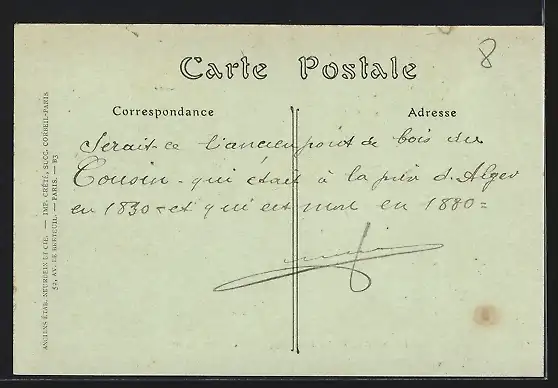 8
Carte Postale
Correspondance
Adresse
Serait-ce l'ancien pont de bois du
Cousin - qui était à la prise d'Alger
en 1830 - et qui est mort en 1880 =
ANCIENS ÉTAB. NEURDEIN ET CIE. — IMP. CRÉTÉ, SUCC. CORBEIL-PARIS
52, AV. DE BRETEUIL. — PARIS. — B3